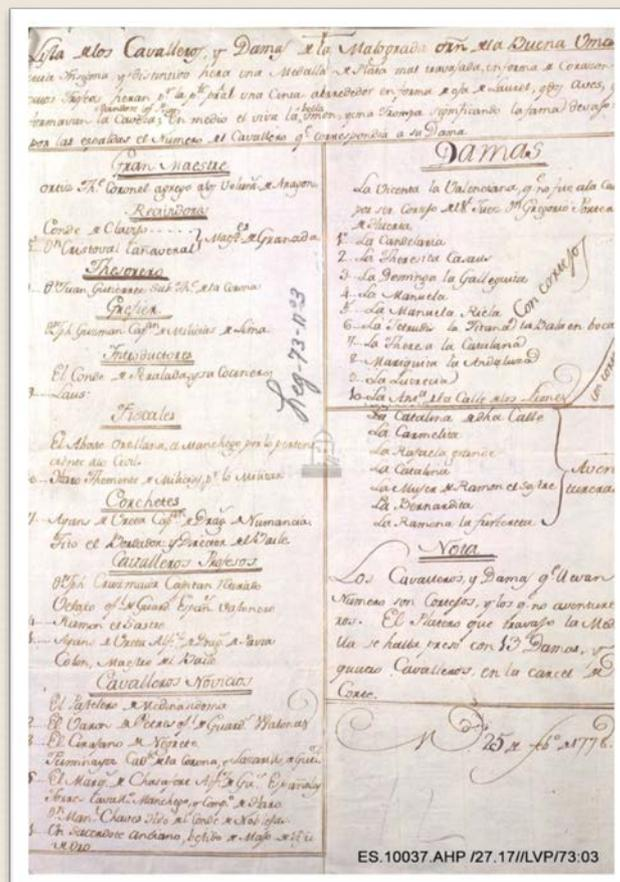 Lista de los Cavalleros, y Damas de la Malograda Orñ de la Buena Union
cuia Insignia y distintivo hera una Medalla de Plata mal travajada, en forma de Corazon
heran pr la pte pral una Cinta alrededor en forma de oja de Laurel, y dos Aves, q
formavan la Caveza; En medio el viva la bella Union, y una Trompa significando la fama) devajo
por las espaldas el Numero de el Cavallero qe correspondia a su Dama
Gran Maestre
Ortiz Thte Coronel agregdo a los Volunts de Aragon
Conde de Clavijo
Dn Cristoval Cañaveral } Magtes de Granada
Thesorero
Dn Juan Gutierrez Sub Thte de la Corona
Grefier
Dn Jph Guzman Capn de Milicias de Lima
Introductores
El Conde de Peralada, y su Cocinero
Laus
Fiscales
El Abate Orellana, el Manchego por lo perten
ciente a lo Civil
Haro Theniente de Milicias, pr lo Militar
Corchetes
Ayans de Ureta Capn de Drags de Numancia
Tito el Bordador, y Director del Baile
Cavalleros Profesos
Dn Jph Capitan
de Guards Españs
Ramon el Sastre
Ayans de Ureta Alfz de Drags de Pavia
Colon, Maestro de Baile
Cavalleros Novicios
El Pastelero de Medinasidonia
El Varon de of. de Guards Walonas
El Cirujano de Negrete
de la Corona, y
El Marqs de Chasafort Alfz de Gs Españolas
Torre Cavallo Manchego, y Compo de Haro
Dn Manl Chaves Tito el Conde de Noblejas
Un Sacerdote Anciano, bestido de Majo
de Oro
DAMAS
La Vicenta la Valenciana, q no fue a la Ca
por ser Cortejo del Sr Juez Dn Gregorio Porter
de Huerta
1a La Candelaria
2 La Theresita Casaus
3 La Dominga la Galleguita
4 La Manuela
5 La Manuela Riela
6 La Getrudis la Gitana) la Bala en boca
7 La Theresa la Catalana
8 Mariquita la Andaluza
9 La Lucrecia
10 La Anta de la Calle de los Leones
Con cortejos
La Catalina de dha Calle
La Carmelita
La Rafaela grande
La Catalina
La Muger de Ramon el Sastre
La Bernardita
La Ramona la
Aven
tureras
Nota
Los Cavalleros, y Damas qe llevan
Numero son Cortejos, y los q no aventure
ros. El Platero que travajo la Med
lla se halla preso con 13 Damas, y
quatro Cavalleros, en la carcel de
Corte.
25 de Febo de 1778
Leg-73-nº3
ES.10037.AHP /27.17//LVP/73:03